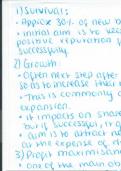 1) Survival:
• Approx 30% of new b
• Initial aim is to
positive reputation
successfully.
2) Growth:
• Often next step after
so as to increase their
• This is commonly
expansion.
• It impacts on
but if successful, it
• Aim is to attract
at the expense of
3) Profit
• one of the main ob